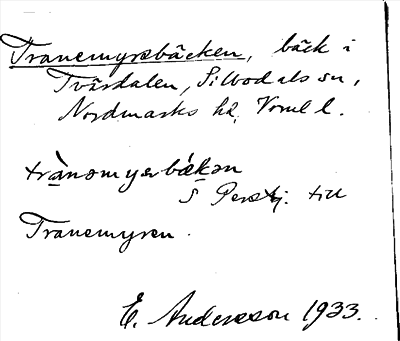 Tranemyrsbäcken, bäck i
Tvärdalen, Silbodals sn,
Nordmarks hd, Vrml l.
trànəmyr bǽkən
S Persbj. till
Tranemyren.
E. Andersson 1933.